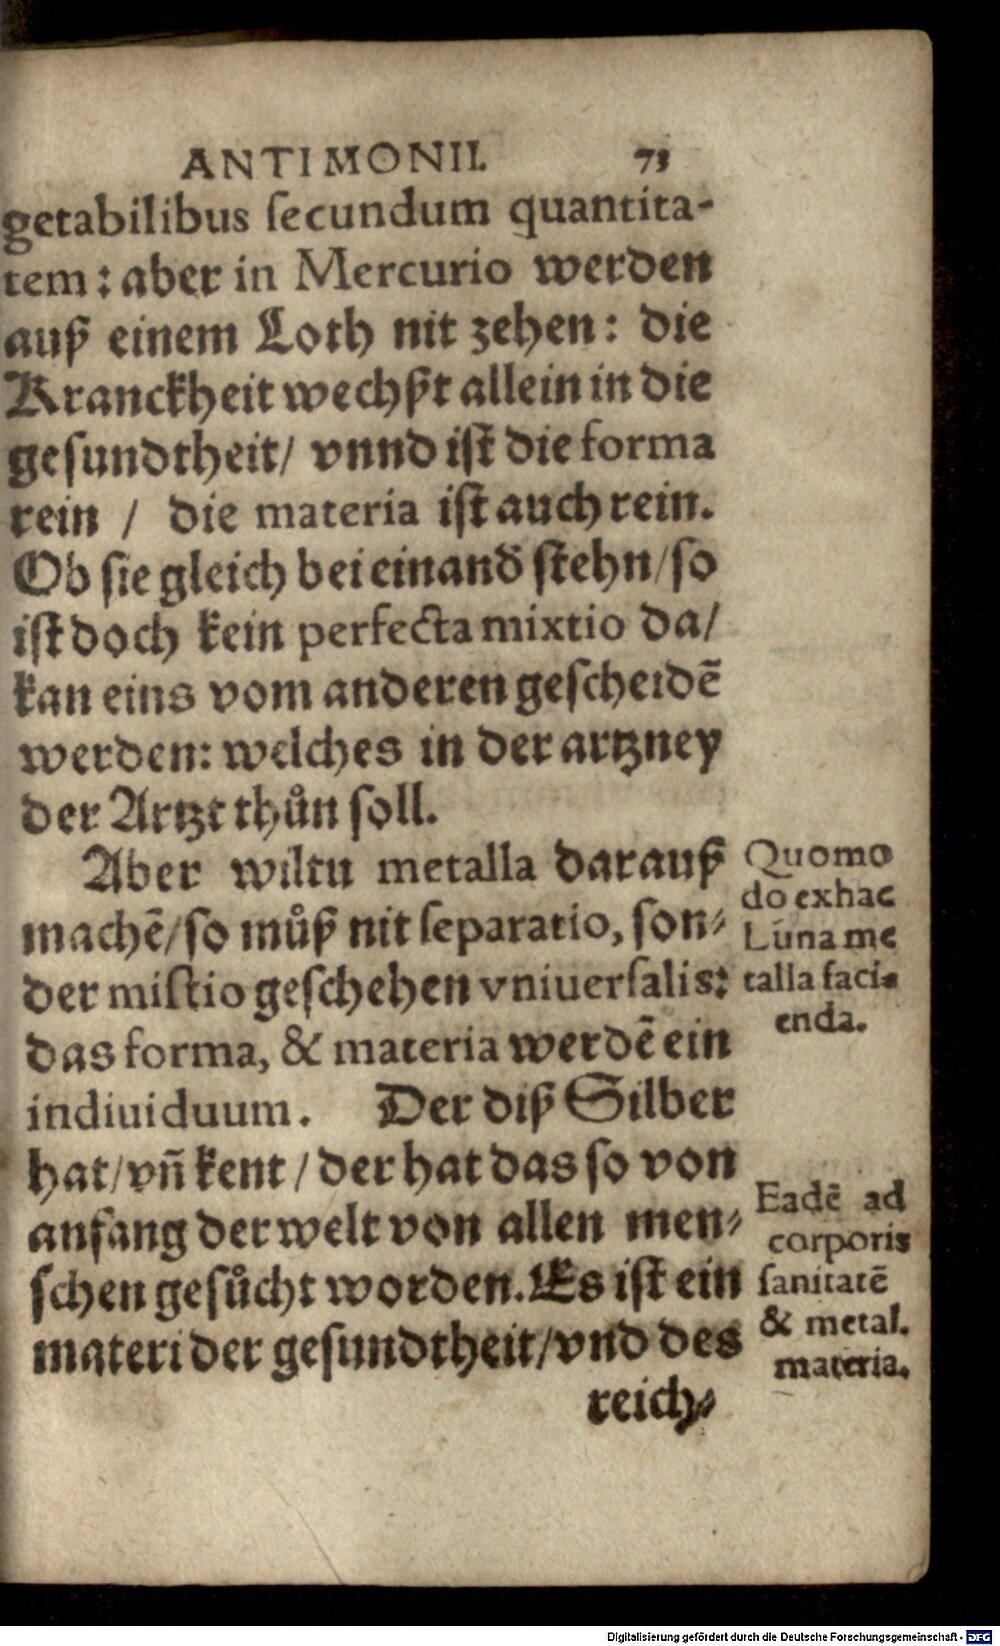 ANTIMONII. 71
getabilibus ſecundum quantita-
tem: aber in Mercurio werden
auß einem Loth nit zehen: die
Kranckheit wechßt allein in die
geſundtheit/ vnnd iſt die forma
rein / die materia iſt auch rein.
Ob ſie gleich bei einand̄ ſtehn/ſo
iſt doch kein perfecta mixtio da/
kan eins vom anderen geſcheidē
werden: welches in der artzney
der Artzt thůn ſoll.
Aber wiltu metalla darauß
machē/ſo můß nit ſeparatio, ſon-
der miſtio geſchehen vniuerſalis:
das forma, & materia werdē ein
indiuiduum. Der diß Silber
hat/vñ kent / der hat das ſo von
anfang der welt von allen men-
ſchen geſůcht worden. Es iſt ein
materi der geſundtheit/vnd des
reich-
Quomo
do ex hac
Luna me
talla faci-
enda.
Eadē ad
corporis
ſanitatē
& metal.
materia.
Digitalisierung gefördert durch die Deutsche Forschungsgemeinschaft - DFG